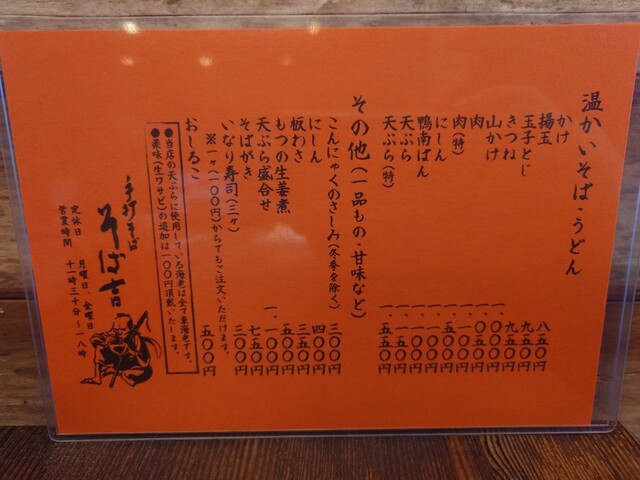 温かいそば・うどん
かけ 八五〇円
揚玉 九五〇円
玉子とじ 九五〇円
きつね
山かけ
肉
肉(特)
にしん
鴨南ばん
天ぷら
天ぷら(特)
その他(一品もの・甘味など)
こんにゃくのさしみ(冬季を除く) 三〇〇円
にしん 四〇〇円
板わさ 三五〇円
もつの生姜煮 五五〇円
天ぷら盛合せ 一、一〇〇円
そばがき 七五〇円
いなり寿司(三ヶ) 三〇〇円
※一ヶ(一〇〇円)からでもご注文いただけます。
おしるこ 五〇〇円
●当店の天ぷらに使用している海老は全て車海老です。
●薬味(生ワサビ)の追加は一〇〇円頂戴いたします。
手打そば
そば吉
定休日 月曜日・金曜日
営業時間 十一時三十分~一八時